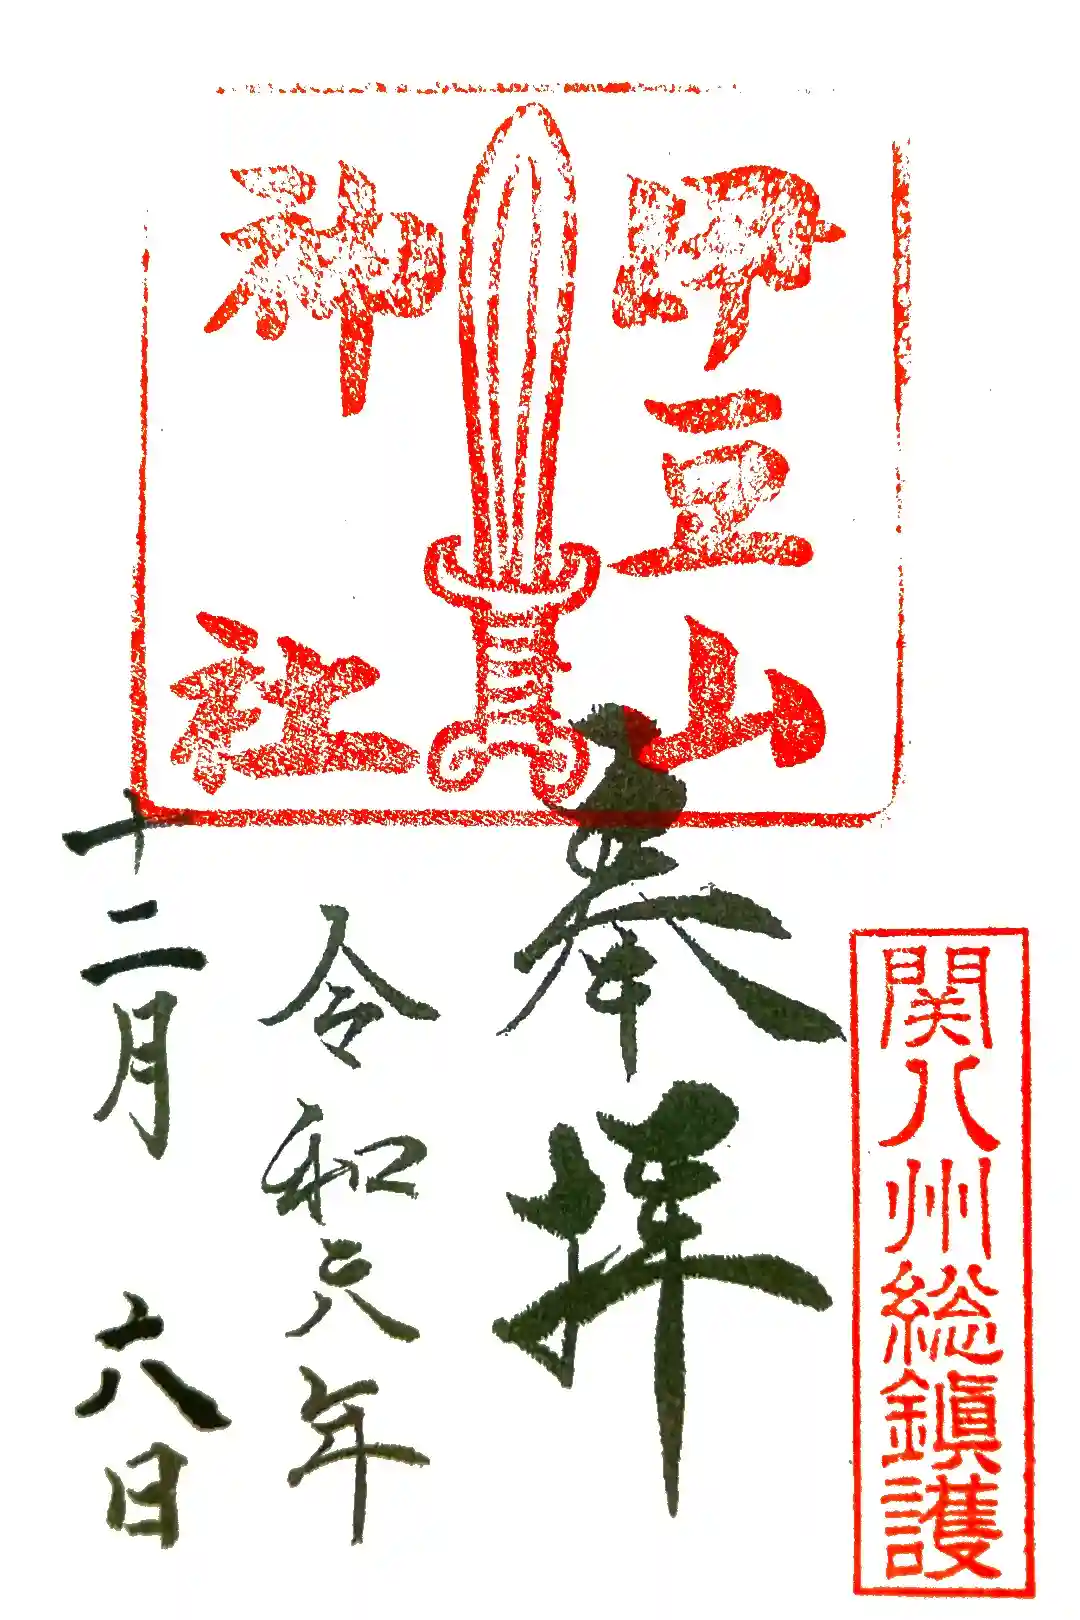 関八州総鎭護
伊豆山
神社
奉拝
令和六年
十二月六日